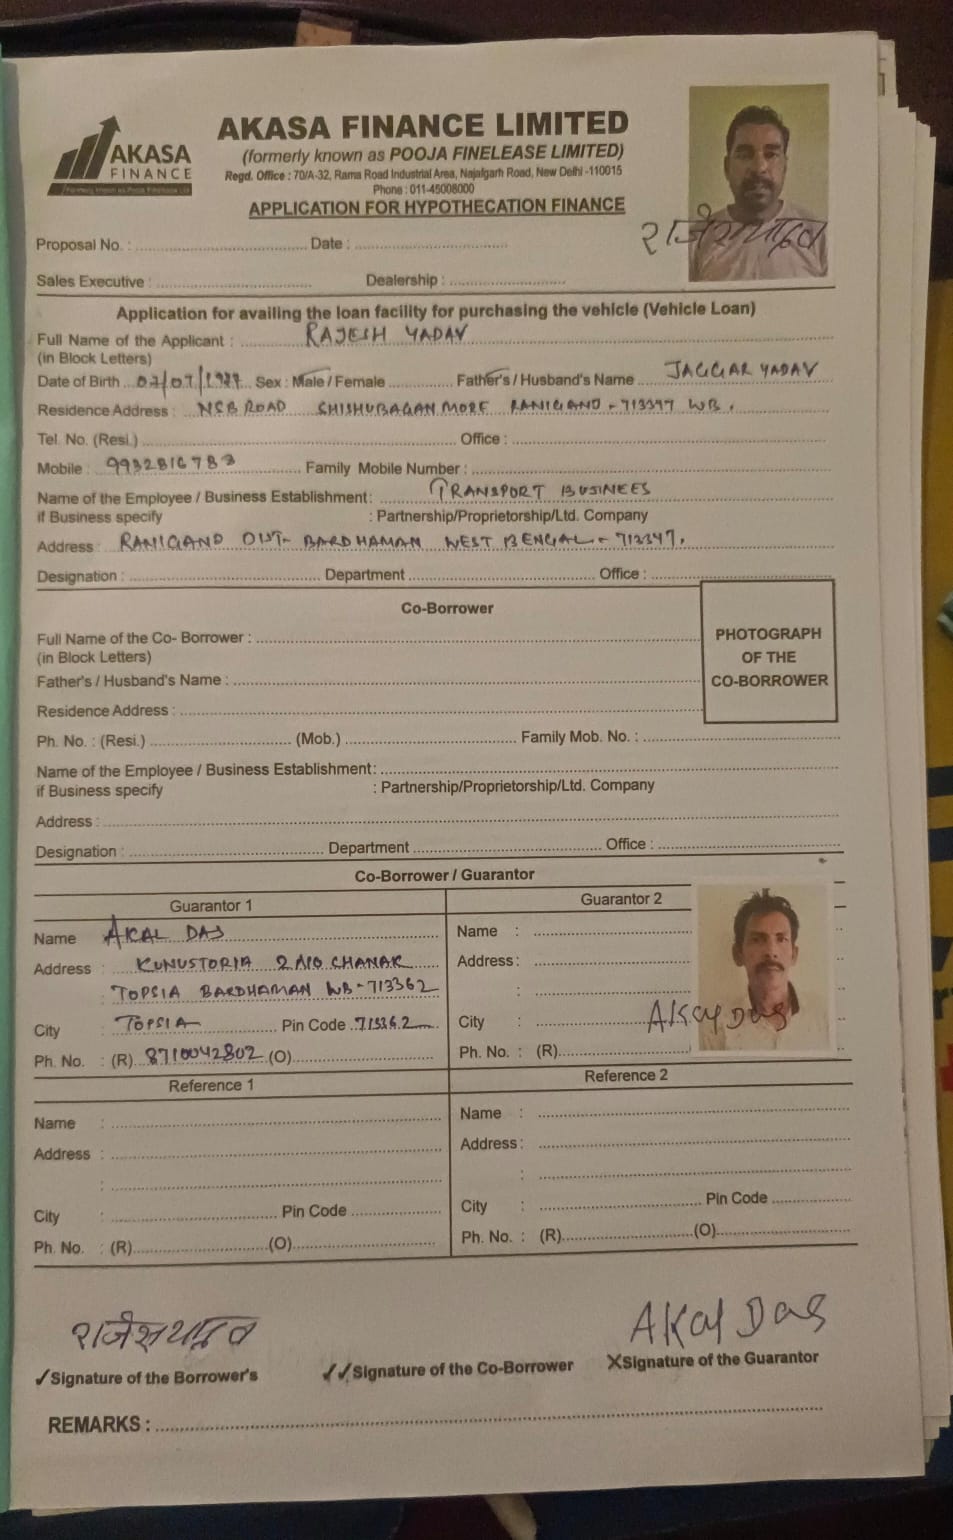 AKASA FINANCE LIMITED
AKASA
FINANCE
(formerly known as POOJA FINELEASE LIMITED)
Regd. Office : 70/A-32, Rama Road Industrial Area, Najafgarh Road, New Delhi -110015
Phone : 011-45008000
APPLICATION FOR HYPOTHECATION FINANCE
राजेश यादव
Proposal No. : Date :
Sales Executive : Dealership :
Application for availing the loan facility for purchasing the vehicle (Vehicle Loan)
Full Name of the Applicant : RAJESH YADAV
(in Block Letters)
Date of Birth Sex : Male / Female Father's / Husband's Name JAGGAR YADAV
Residence Address : NSB ROAD SHISHUBAGAN MORE RANIGANJ - 713347 WB.
Tel. No. (Resi.) Office :
Mobile : 9932816783 Family Mobile Number :
Name of the Employee / Business Establishment: TRANSPORT BUSINEES
if Business specify : Partnership/Proprietorship/Ltd. Company
Address : RANIGANJ DIST- BARDHAMAN WEST BENGAL - 713347.
Designation : Department Office :
Co-Borrower
PHOTOGRAPH
OF THE
CO-BORROWER
Full Name of the Co- Borrower :
(in Block Letters)
Father's / Husband's Name :
Residence Address :
Ph. No. : (Resi.) (Mob.) Family Mob. No. :
Name of the Employee / Business Establishment:
if Business specify : Partnership/Proprietorship/Ltd. Company
Address :
Designation : Department Office :
Co-Borrower / Guarantor
Guarantor 1
Name AKAL DAS
Address : KUNUSTORIA 2 A/O CHANAK
: TOPSIA BARDHAMAN WB-713362
City : TOPSIA Pin Code 713362
Ph. No. : (R) 8710042802 (O)
Guarantor 2
Name :
Address :
:
City :
Ph. No. : (R)
Akal Das
Reference 1
Name :
Address :
:
City : Pin Code
Ph. No. : (R) (O)
Reference 2
Name :
Address :
:
City : Pin Code
Ph. No. : (R) (O)
राजेश यादव
Akal Das
✓Signature of the Borrower's
✓✓Signature of the Co-Borrower
XSignature of the Guarantor
REMARKS :